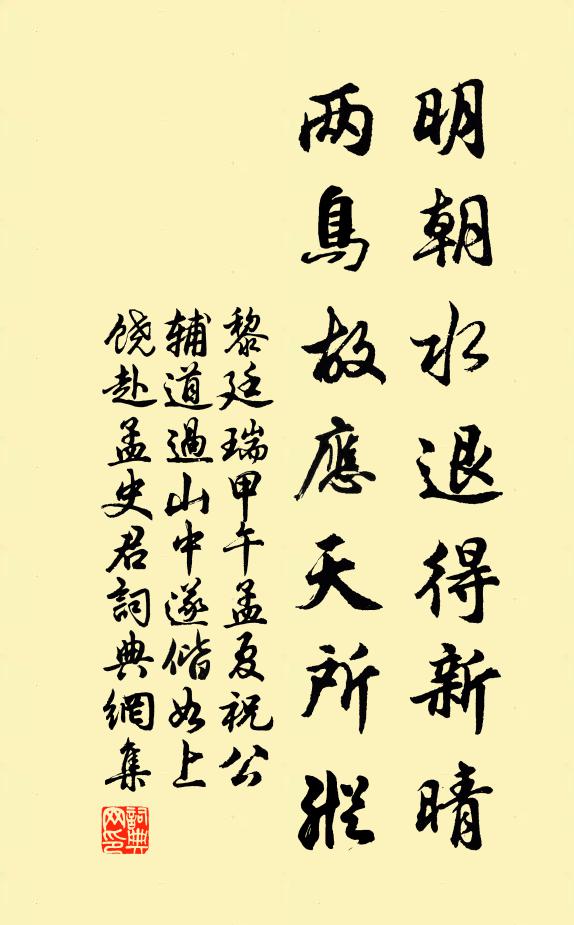 明朝水退得新晴
两鳥故應天所縱
黎廷瑞甲午孟夏祝公
辅道過山中遂偕如上
饶赴孟史君詞典網集
詞典
网印